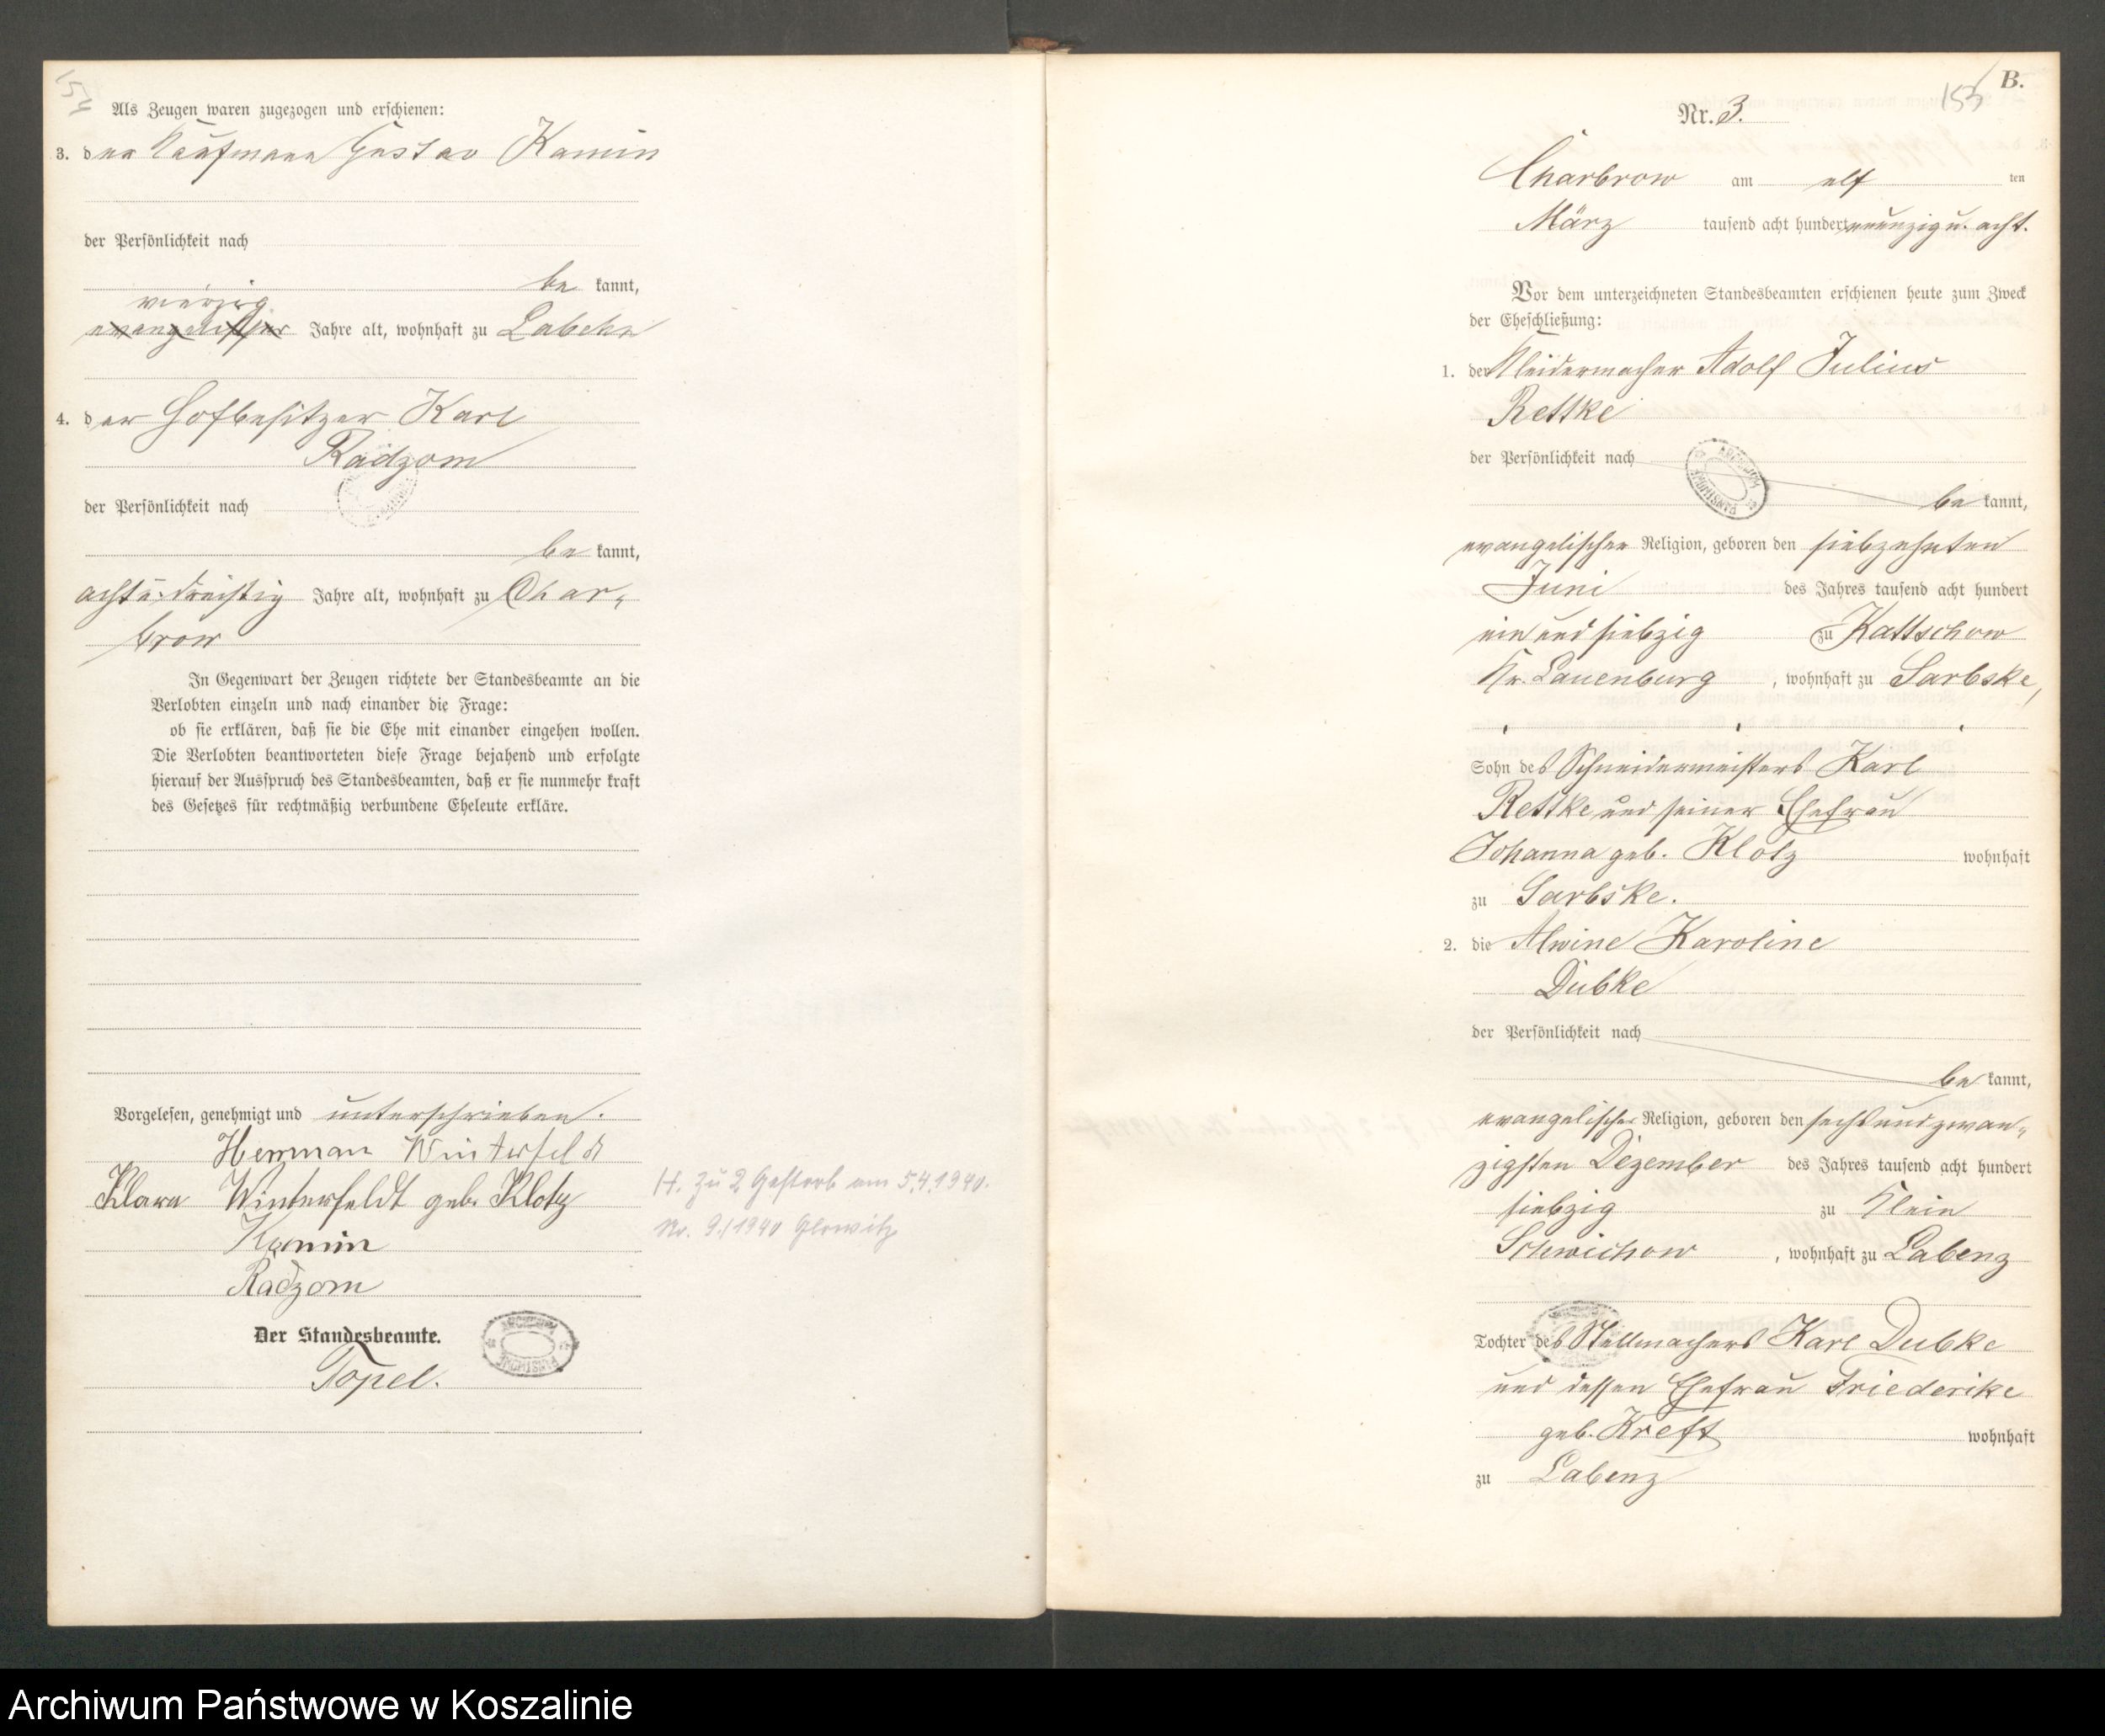 54
Als Zeugen waren zugezogen und erschienen:
3. der Kaufmann Gustav Kamin
der Persönlichkeit nach
be kannt,
vierzig
evangelischer Jahre alt, wohnhaft zu Labehn
4. der Hofbesitzer Karl
Radzom
der Persönlichkeit nach
be kannt,
acht u. dreißig Jahre alt, wohnhaft zu Char-
brow
In Gegenwart der Zeugen richtete der Standesbeamte an die
Verlobten einzeln und nach einander die Frage:
ob sie erklären, daß sie die Ehe mit einander eingehen wollen.
Die Verlobten beantworteten diese Frage bejahend und erfolgte
hierauf der Ausspruch des Standesbeamten, daß er sie nunmehr kraft
des Gesetzes für rechtmäßig verbundene Eheleute erkläre.
Vorgelesen, genehmigt und unterschrieben.
Herrman Winterfeldt
Klara Winterfeldt geb. Klotz
Kamin
Radzom
Der Standesbeamte.
Topel.
H. zu 2 Gestorb am 5.4.1940.
Nr. 9./1940 Glowitz
B.
155
Nr. 3.
Charbrow am elf ten
März tausend acht hundert neunzig u. acht.
Vor dem unterzeichneten Standesbeamten erschienen heute zum Zweck
der Eheschließung:
1. der Kleidermacher Adolf Julius
Rettke
der Persönlichkeit nach
be kannt,
evangelischer Religion, geboren den siebzehnten
Juni des Jahres tausend acht hundert
ein und siebzig zu Kattschow
Kr. Lauenburg, wohnhaft zu Sarbske,
Sohn des Schneidermeisters Karl
Rettke und seiner Ehefrau
Johanna geb. Klotz wohnhaft
zu Sarbske.
2. die Alwine Karoline
Dubke
der Persönlichkeit nach
be kannt,
evangelischer Religion, geboren den sechsundzwan-
zigsten Dezember des Jahres tausend acht hundert
siebzig zu Klein
Schwichow, wohnhaft zu Labenz
Tochter des Stellmachers Karl Dubke
und dessen Ehefrau Friederike
geb. Kreft wohnhaft
zu Labenz
Archiwum Państwowe w Koszalinie